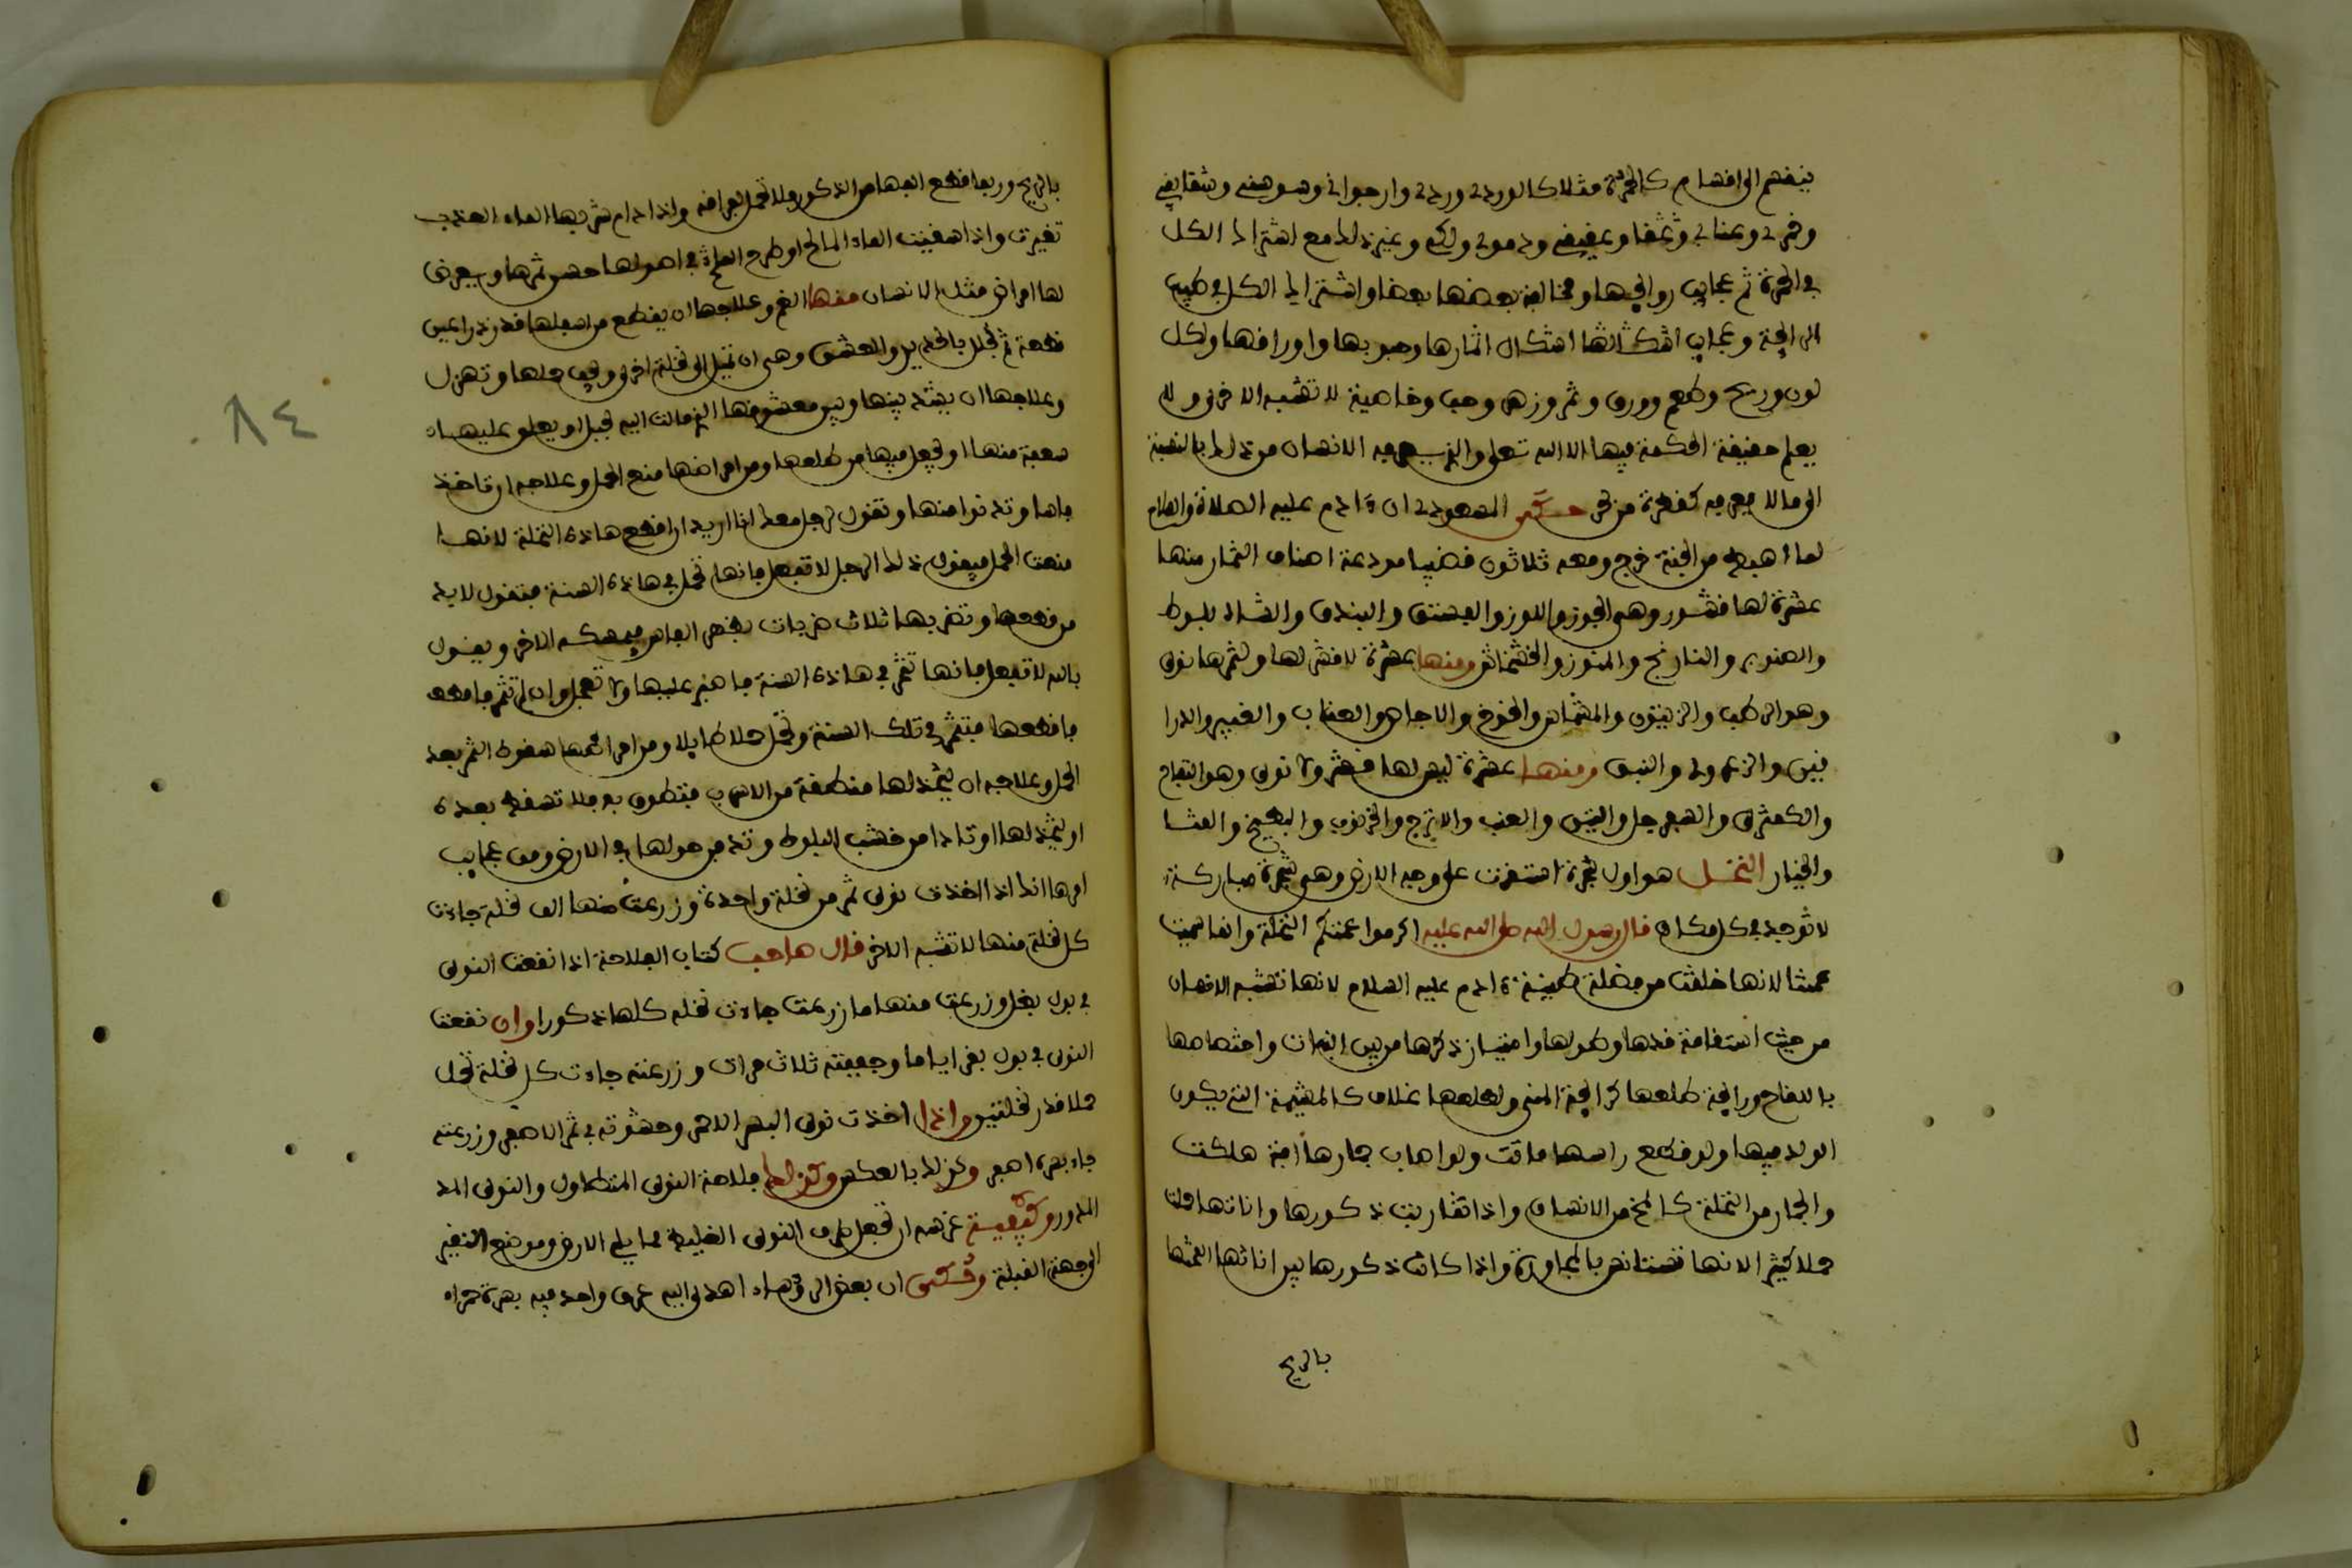 ينقسم الى اقسام كالحمرة مثلا كالوردى وردى وارجوانى وسوسنى وشقايقى
وخمرى وعنابى وعقيقى ودموى ولكى وغير ذلك مع اشتراك الكل
فى الحمرة ثم عجايب روايحها ومخالفة بعضها بعضا واشتراك الكل فى طيب
الرايحة وعجايب اشكال اثمارها وحبوبها واوراقها ولكل
لون وريح وطعم وورق وثمر وزهر وحب وخاصية لا تشبه الاخرى ولا
يعلم حقيقة الحكمة فيها الا الله تعلى والذى يعرفه الانسان من ذلك بالنسبة
الى ما لا يعرفه كقطرة من بحر حكى المسعودى ان ءادم عليه الصلاة والسلام
لما اهبط من الجنة خرج ومعه ثلاثون قضيبا مودعة اصناف الثمار منها
عشرة لها قشور وهى الجوز واللوز والفستق والبندق والشاه بلوط
والصنوبر والنارنج والموز والخشخاش ومنها عشرة لا قشر لها ولثمرها نوى
وهو الرطب والزيتون والمشماش والخوخ والاجاص والعناب والغبيرا والدرا
فين والزعرور والنبق ومنها عشرة ليس لها قشر ولا نوى وهو التفاح
والكمثرى والسفرجل والتين والعنب والاترج والخرنوب والبطيخ والقثا
والخيار النخل هو اول شجرة استقرت على وجه الارض وهى شجرة مباركة
لا توجد فى كل مكان قال رسول الله صلى الله عليه اكرموا عمتكم النخلة وانما سميت
عمتنا لانها خلقت من فضلة طينة ءادم عليه السلام لانها تشبه الانسان
من حيث استقامة قدها وطولها وامتياز ذكرها من بين النبات واختصاصها
باللقاح ورايحة طلعها كرايحة المنى ولطلعها غلاف كالمشيمة التى يكون
الولد فيها ولو قطع راسها ماتت ولو اصاب جمارها افة هلكت
والجمار من النخلة كالمخ من الانسان واذا تقاربت ذكورها واناثها حملت
حملا كثيرا لانها تستانس بالمجاورة واذا كانت ذكورها بين اناثها القحتها
بالريح
بالريح وربما قطع الفها من الذكور فلا تحمل لفراقه واذا دام شربها الماء العذب
تغيرت واذا سقيت الماء المالح او طرح الملح فى اصولها حسن ثمرها ويعرض
لها امراض مثل الانسان منها الغم وعلاجها ان يقطع من اسفلها قدر ذراعين
قطعة ثم تخلل بالحديد والعشق وهى ان تميل الى نخلة اخرى ويخف حملها وتهزل
وعلاجها ان يشد بينها وبين معشوقها الذى مالت اليه بحبل او يعلق عليها
سعفة منها او يجعل فيها من طلعها ومن امراضها منع الحمل وعلاجه ان تاخذ
فاسا وتدنوا منها وتقول لرجل معك انا اريد ان اقطع هاذه النخلة لانها
منعت الحمل فيقول ذلك الرجل لا تفعل فانها تحمل فى هاذه السنة فتقول لا بد
من قطعها وتضربها ثلاث ضربات بظهر الفاس فيمسكه الاخر ويقول
بالله لا تفعل فانها تثمر فى هاذه السنة فاصبر عليها ولا تعجل وان لم تثمر فاقطعها
فاقطعها فتثمر فى تلك السنة وتحمل حملا طايلا ومن امراضها سقوط الثمر بعد
الحمل وعلاجه ان يتخذ لها منطقة من الاسرب فتطوق به فلا تسقط بعده
او يتخذ لها اوتادا من خشب البلوط وتدفن حولها فى الارض ومن عجايب
امرها انك اذا اخذت نوى ثمر من نخلة واحدة وزرعت منها الف نخلة جاءت
كل نخلة منها لا تشبه الاخرى قال صاحب كتاب الفلاحة اذا نقعت النوى
فى بول بغل وزرعت منها ما زرعت جاءت نخله كلها ذكورا وان نقعت
النوى فى بول بقر اياما وجففته ثلاث مرات وزرعته جاءت كل نخلة تحمل
حملا قدر نخلتين واذا اخذت نوى البسر الاحمر وحشوته فى ثمر الاصفر وزرعته
جاء بسره اصفر وكذلك بالعكس وكذلك فلاحة النوى المتطاول والنوى المد
المدور وكيفية غرسه ان تجعل طرف النوى الغليظ مما يلى الارض وموضع النقير
الى جهة القبلة وحكى ان بعض الروساء اهدى اليه عرق واحد فيه بسرة حمراء
٨٤